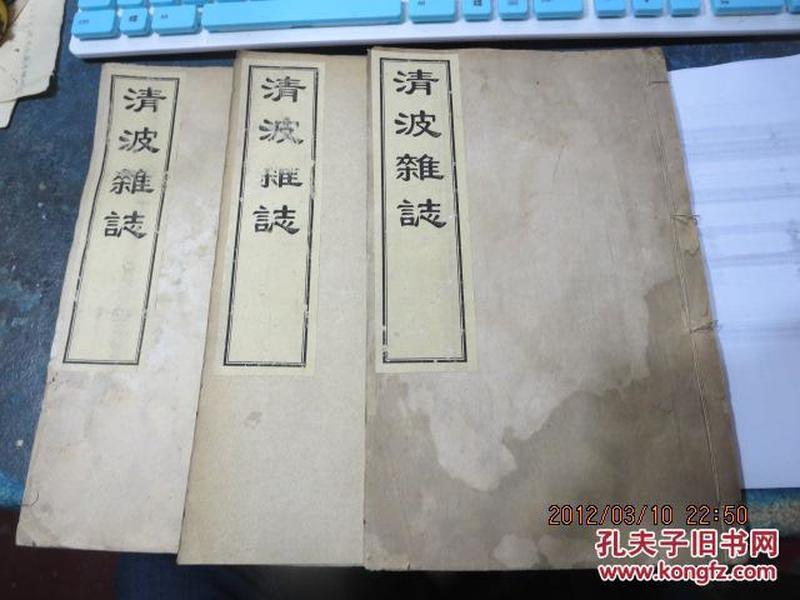 清波雜誌
清波雜誌
清波雜誌
2012/03/10 22:50
孔夫子旧书网
www.kongfz.com